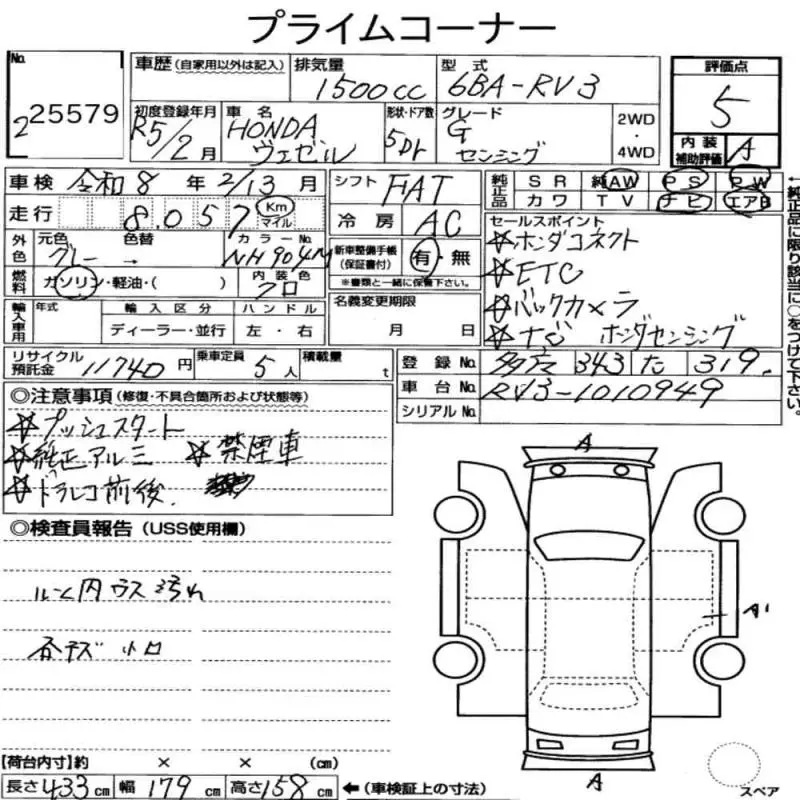 プライムコーナー
No. 225579
車歴 (自家用以外は記入) 排気量 1500cc 型式 6BA-RV3 評価点 5
初度登録年月 R5/2月 車名 HONDA ヴェゼル 形状・ドア数 5Dr グレード G センシング 2WD・4WD 内装補助評価 A
車検 令和8年2/13月 シフト FAT 純正品 SR 純AW PS PW
走行 8.057 Km マイル 冷房 AC カワ TV ナビ エアB
外色 元色 グレー 色替 → カラーNo. NH904M 新車整備手帳(保証書付) 有・無 ※書類と一緒に保管下さい。
燃料 ガソリン・軽油・( ) 内装色 クロ
輸入車用 年式 輸入区分 ディーラー・並行 ハンドル 左・右 名義変更期限 月 日
セールスポイント
☆ホンダコネクト
☆ETC
☆バックカメラ
☆ナビ ホンダセンシング
リサイクル預託金 11740円 乗車定員 5人 積載量 t
登録No. 多摩 343 た 319.
車台No. RV3-1010949
シリアルNo.
←純正品に限り該当に○をつけて下さい。
◎注意事項(修復・不具合箇所および状態等)
☆プッシュスタート
☆純正アルミ ☆禁煙車
☆ドラレコ前後
◎検査員報告(USS使用欄)
ルーム内 ウス汚れ
各キズ 小凹
A
A'
A
スペア
【荷台内寸】約 × × (cm)
長さ 433cm 幅 179cm 高さ 158cm ←(車検証上の寸法)